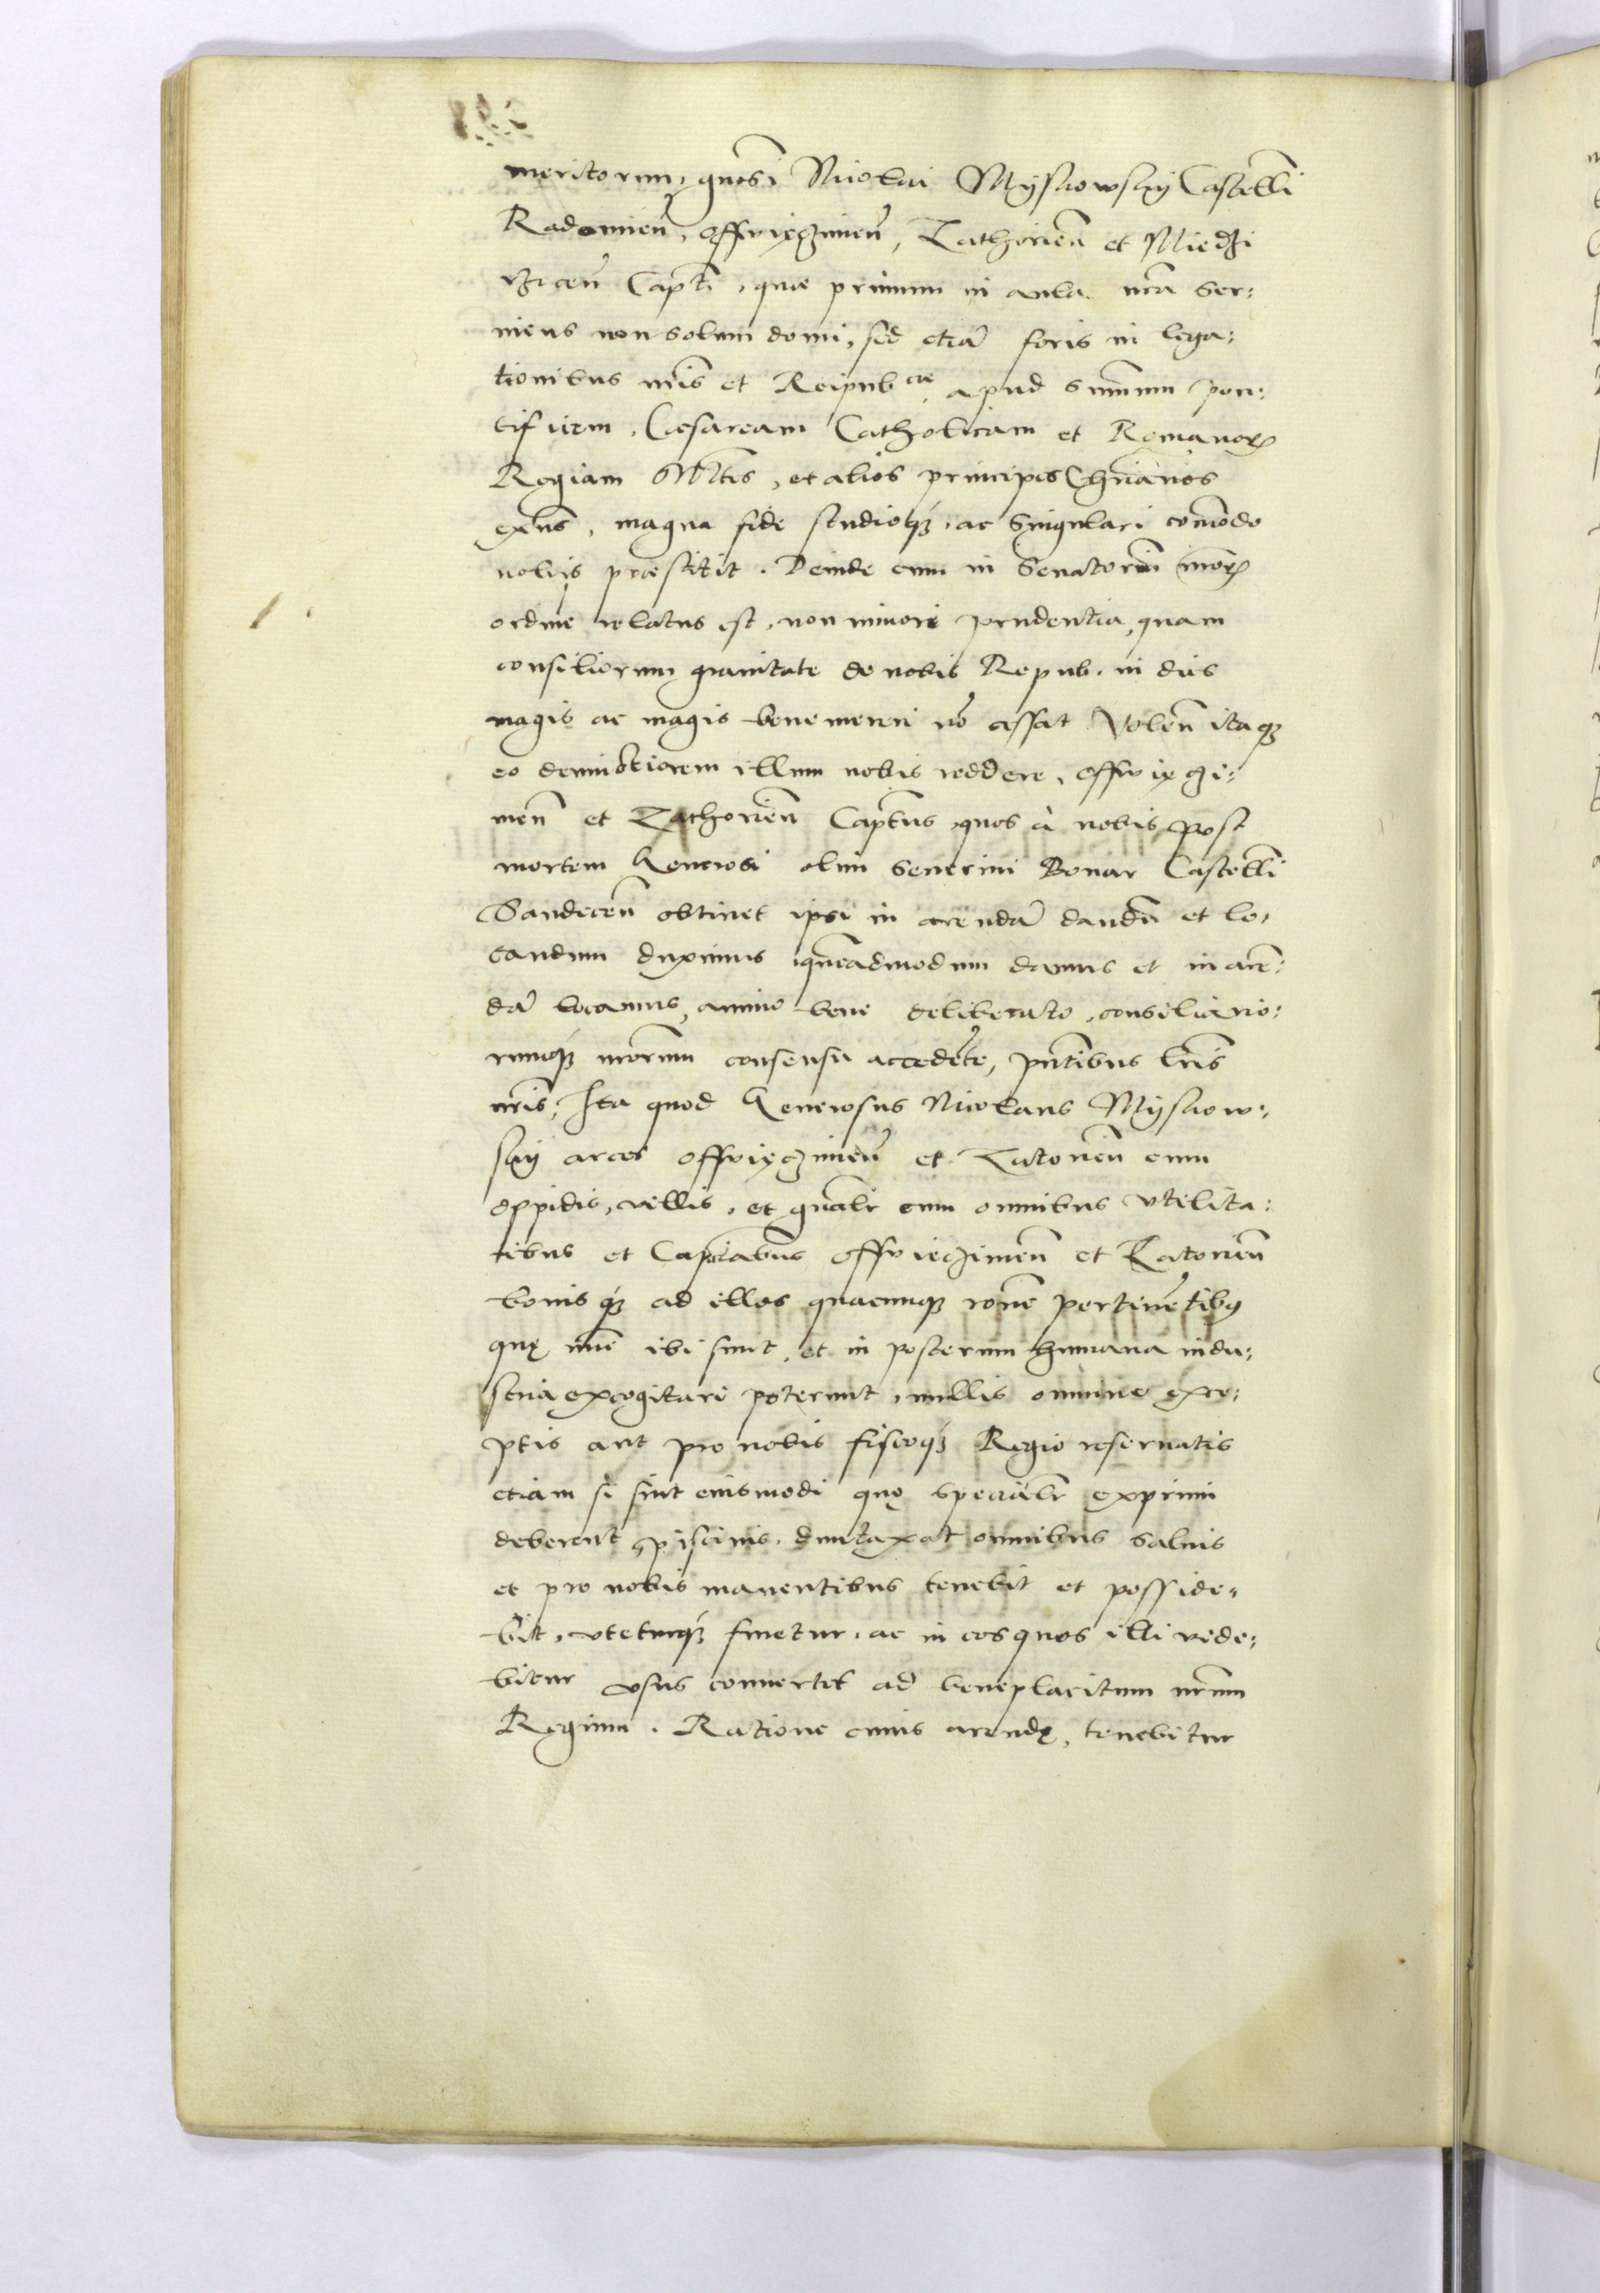 meritorum, gnosi Nicolai Myscowsky Castelli
Radomien, Osswiączimen, Zathorien et Miedzi
rzecen Capti, quae primum in aula nra ser:
uiens non solum domi, sed etia foris in lega:
tionibus nris et Reipub cae apud summum pon:
tificem, Caesaream Catholicam et Romanor
Regiam Mtes, et alios principes Chrianos
exns, magna fide studioq, ac singulari comodo
nobis praestitit. Deinde cum in Senatorum nror
ordine relatus est, non minori prudentia, quam
consiliorum grauitate de nobis Repub. in dies
magis ac magis benemereri no cessat Volen itaq
eo deuinctiorem illum nobis reddere, Osswięci:
men et Zathorien Captus, quos à nobis post
mortem Generosi olim Seuerini Bonar Castelli
Sandecen obtinet ipsi in arenda dandu et lo:
candum duximus queadmodum damus et in aren:
da locamus, animo bene deliberato, consiliario:
rumq nrorum consensu accedete, pntibus lris
nris, Ita quod Generosus Nicolaus Myscow:
sky arces Osswięczimen et Zatorien cum
oppidis, villis, et gnalr cum omnibus vtilita:
tibus et Captiabus Osswieczimen et Zatorien
bonisq ad illos quacunq rone pertinetibus
quę nuc ibi sunt, et in posterum humana indu:
stria excogitari poterunt, nullis omnino exce:
ptis aut pro nobis fiscoq Regio reseruatis
etiam si sint eiusmodi quę specialr exprimi
deberent, piscinis duntaxat omnibus saluis
et pro nobis manentibus tenebit et posside:
bit, vteturq fruetur, ac in eos quos illi vide:
bitur vsus conuertet ad beneplacitum nrum
Regium. Ratione cuius arendę, tenebitur